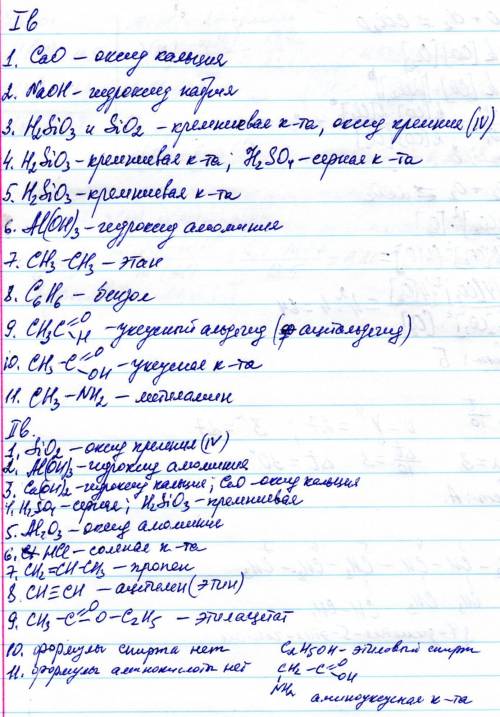 I в
1. CaO – оксид кальция
2. NaOH – гидроксид натрия
3. H₂SiO₃ и SiO₂ – кремниевая к-та, оксид кремния (IV)
4. H₂SiO₃ – кремниевая к-та; H₂SO₄ – серная к-та
5. H₂SiO₃ – кремниевая к-та
6. Al(OH)₃ – гидроксид алюминия
7. CH₃ – CH₃ – этан
8. C₆H₆ – бензол
9. CH₃C=O H – уксусный альдегид (ацетальдегид)
10. CH₃ – C=O OH – уксусная к-та
11. CH₃ – NH₂ – метиламин
II в.
1. SiO₂ – оксид кремния (IV)
2. Al(OH)₃ – гидроксид алюминия
3. Ca(OH)₂ – гидроксид кальция; CaO – оксид кальция
4. H₂SO₄ – серная; H₂SiO₃ – кремниевая
5. Al₂O₃ – оксид алюминия
6. HCl – соляная к-та
7. CH₂=CH–CH₃ – пропен
8. CH≡CH – ацетилен (этин)
9. CH₃ – C=O – O – C₂H₅ – этилацетат
10. формулы спирта нет C₂H₅OH – этиловый спирт
11. формулы аминокислоты нет CH₂ – C=O OH
NH₂ аминоуксусная к-та